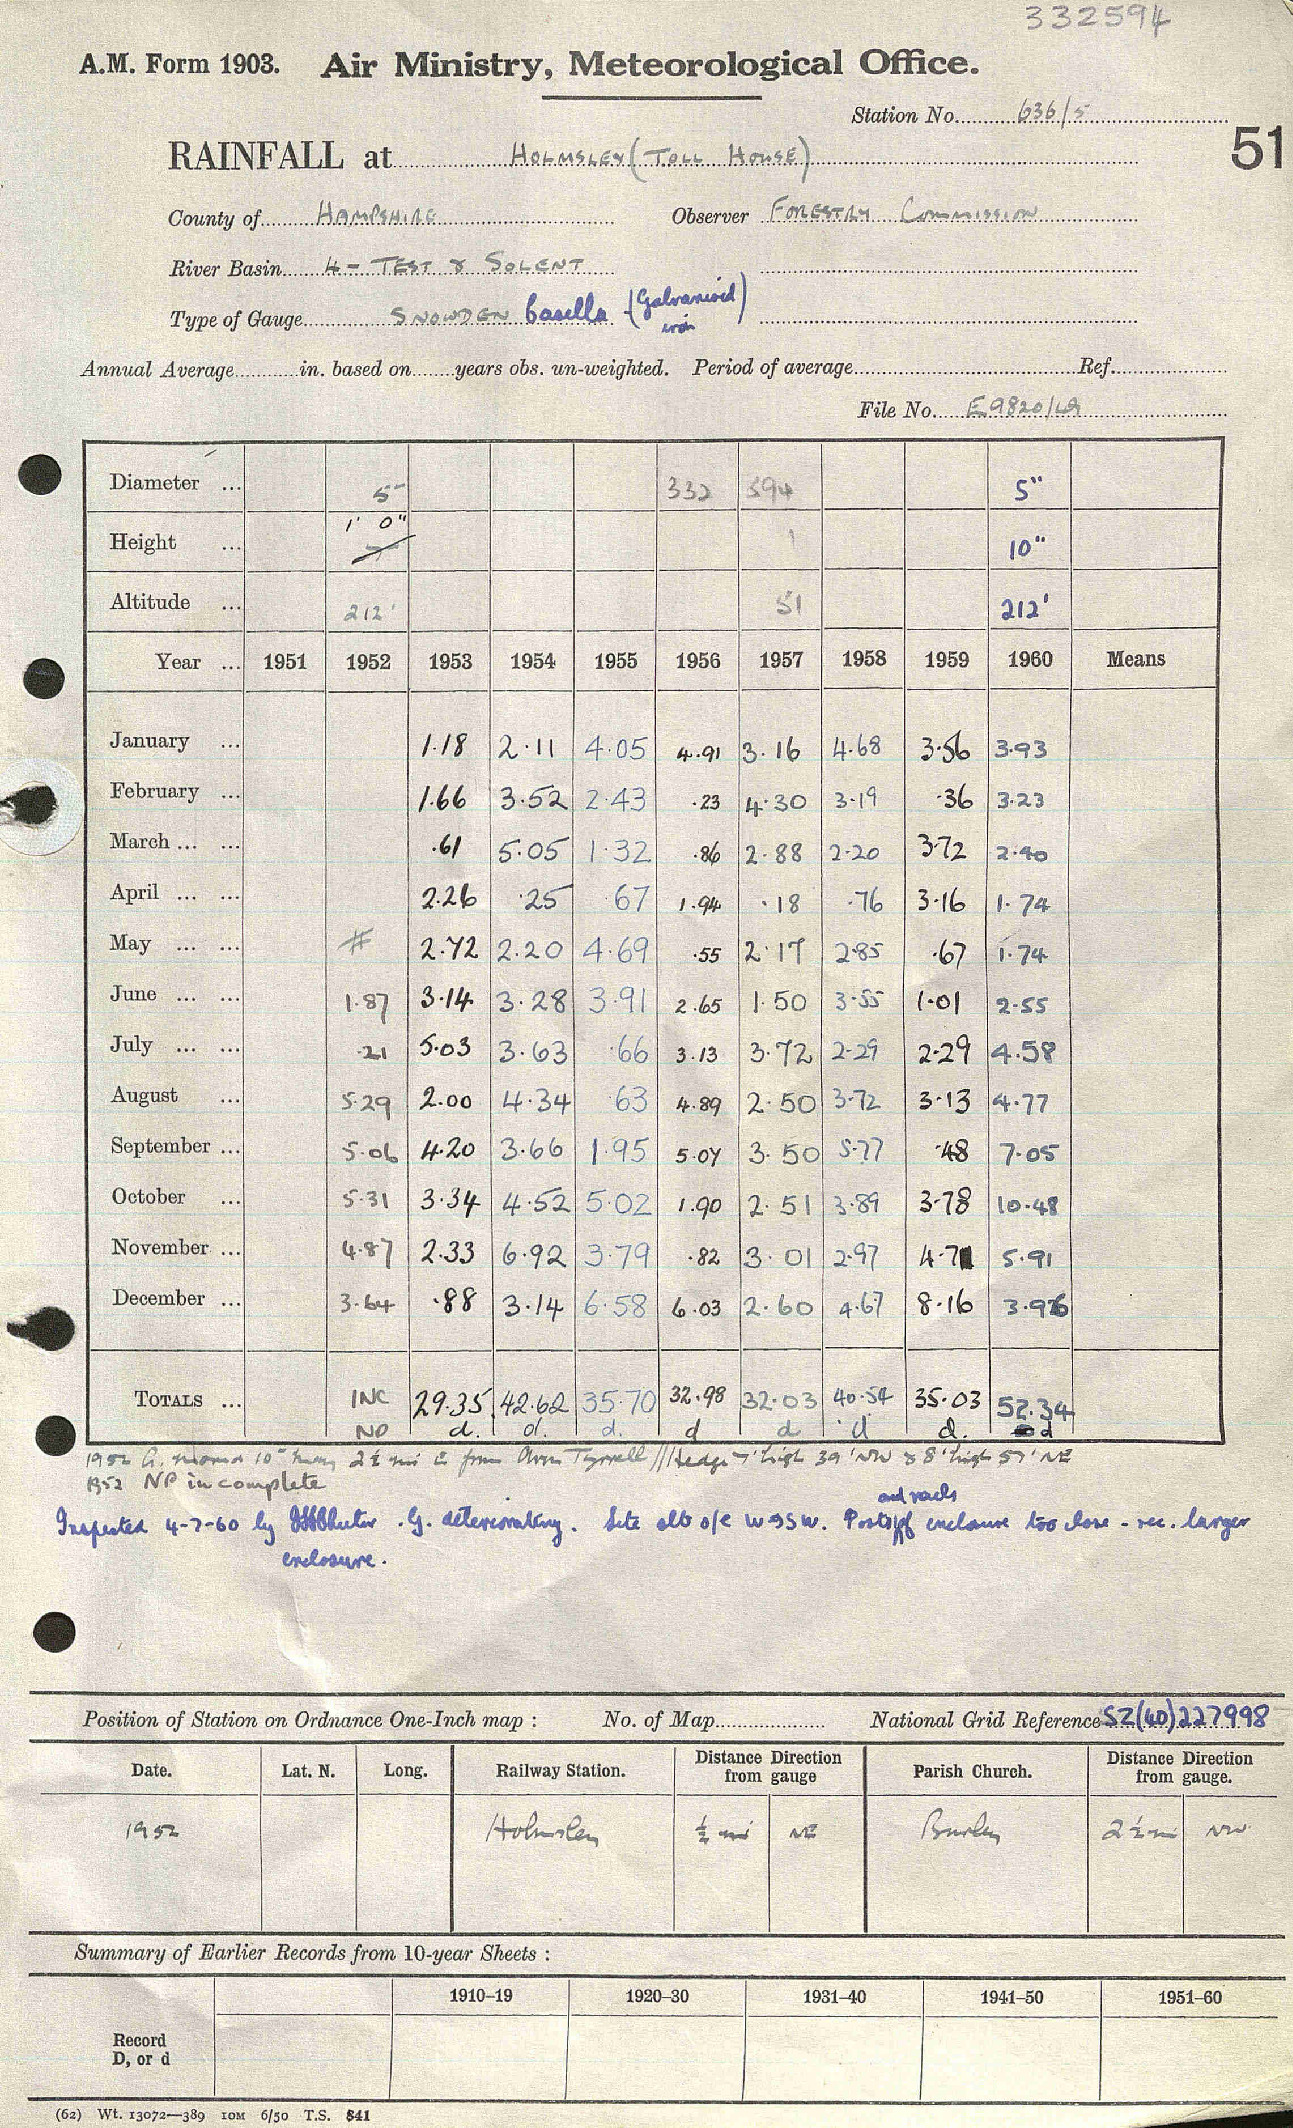 332594
A.M. Form 1903. Air Ministry, Meteorological Office.
Station No. 636/5
51
RAINFALL at HOLMSLEY (TOLL HOUSE)
County of HAMPSHIRE Observer FORESTRY COMMISSION
River Basin 4 - TEST & SOLENT
Type of Gauge SNOWDEN Casella (Galvanised iron)
Annual Average in. based on years obs. un-weighted. Period of average Ref.
File No. E9820/49
Diameter ... 5" 332 594 5"
Height ... 1' 0" 1 10"
Altitude ... 212' 51 212'
Year ... 1951 1952 1953 1954 1955 1956 1957 1958 1959 1960 Means
January ... 1.18 2.11 4.05 4.91 3.16 4.68 3.56 3.93
February ... 1.66 3.52 2.43 .23 4.30 3.19 .36 3.23
March ... ... .61 5.05 1.32 .86 2.88 2.20 3.72 2.40
April ... ... 2.26 .25 .67 1.94 .18 .76 3.16 1.74
May ... ... # 2.72 2.20 4.69 .55 2.17 2.85 .67 1.74
June ... ... 1.87 3.14 3.28 3.91 2.65 1.50 3.55 1.01 2.55
July ... ... .21 5.03 3.63 .66 3.13 3.72 2.29 2.29 4.58
August ... 5.29 2.00 4.34 .63 4.89 2.50 3.72 3.13 4.77
September ... 5.06 4.20 3.66 1.95 5.07 3.50 5.77 .48 7.05
October ... 5.31 3.34 4.52 5.02 1.90 2.51 3.89 3.78 10.48
November ... 4.87 2.33 6.92 3.79 .82 3.01 2.97 4.71 5.91
December ... 3.64 .88 3.14 6.58 6.03 2.60 4.67 8.16 3.96
TOTALS ... INC 29.35 42.62 35.70 32.98 32.03 40.54 35.03 52.34
NP d. d. d. d d d d. d
1952 G. moved 10" May 2½ mi E from Avon Tyrrell // Hedge 7' high 39' NW & 8' high 57' NE
1952 NP incomplete
Inspected 4-7-60 by . G. deteriorating. Site alt o/e W & SW. Posts and rails of enclosure too close - rec. larger
enclosure.
Position of Station on Ordnance One-Inch map : No. of Map National Grid Reference SZ(40)227998
Date. Lat. N. Long. Railway Station. Distance from gauge Direction Parish Church. Distance from gauge. Direction
1952 Holmsley ½ mi NE Burley 2½ mi NW
Summary of Earlier Records from 10-year Sheets :
1910–19 1920–30 1931–40 1941–50 1951–60
Record
D, or d
(62) Wt. 13072—389 10M 6/50 T.S. 841